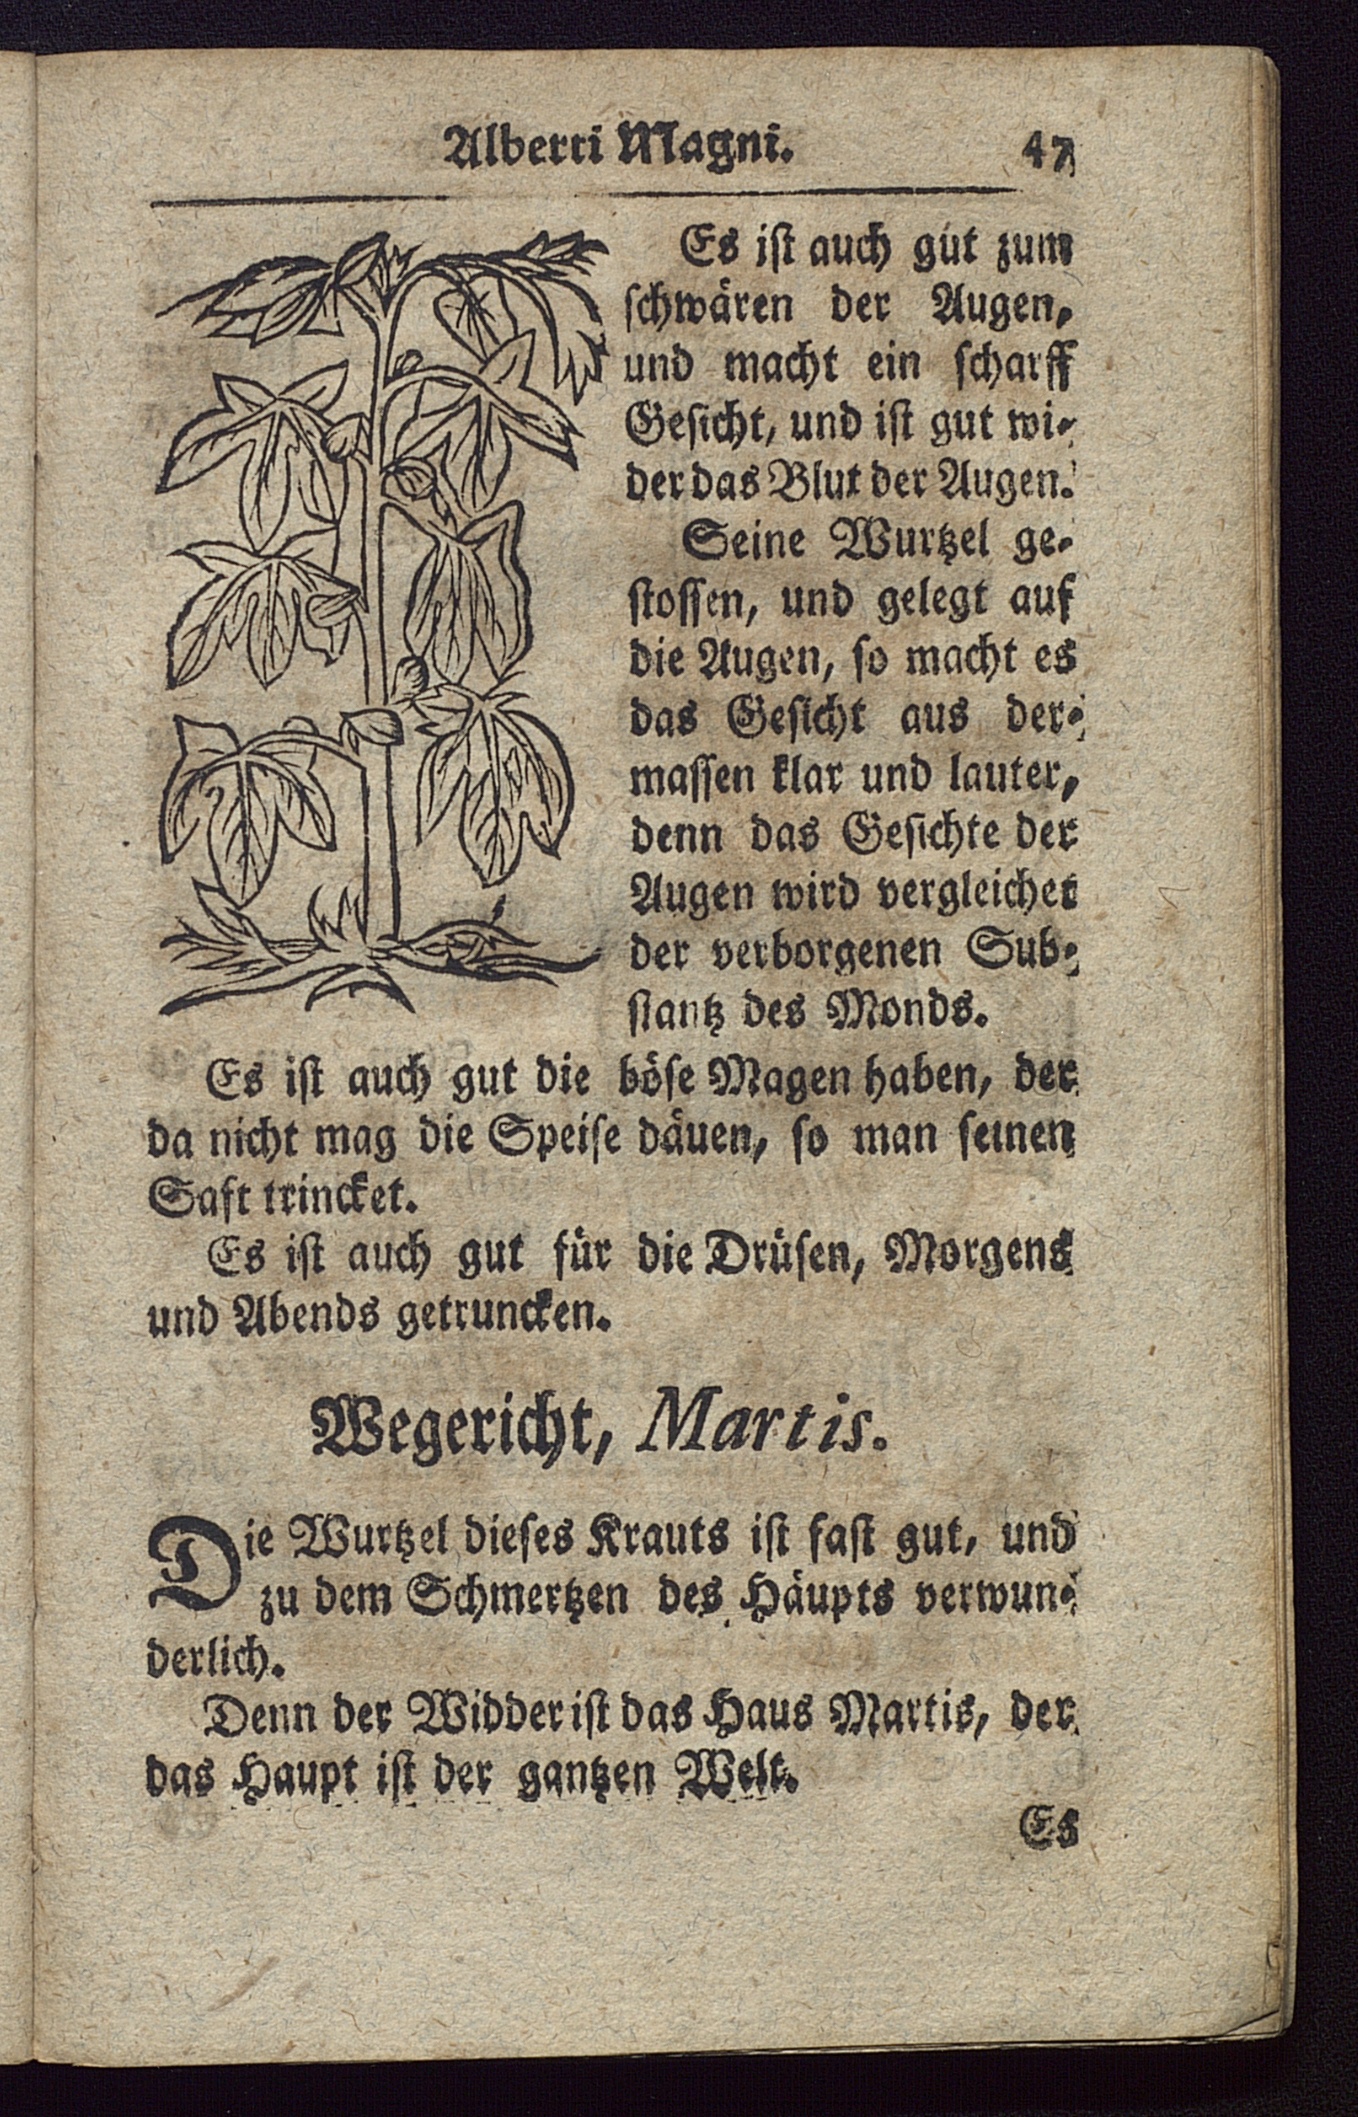 Alberti Magni. 47
Es ist auch gut zum
schwären der Augen,
und macht ein scharff
Gesicht, und ist gut wi-
der das Blut der Augen.
Seine Wurtzel ge-
stossen, und gelegt auf
die Augen, so macht es
das Gesicht aus der-
massen klar und lauter,
denn das Gesichte der
Augen wird vergleichet
der verborgenen Sub-
stantz des Monds.
Es ist auch gut die böse Magen haben, der
da nicht mag die Speise däuen, so man seinen
Saft trincket.
Es ist auch gut für die Drüsen, Morgens
und Abends getruncken.
Wegericht, Martis.
Die Wurtzel dieses Krauts ist fast gut, und
zu dem Schmertzen des Häupts verwun-
derlich.
Denn der Widder ist das Haus Martis, der
das Haupt ist der gantzen Welt.
Es